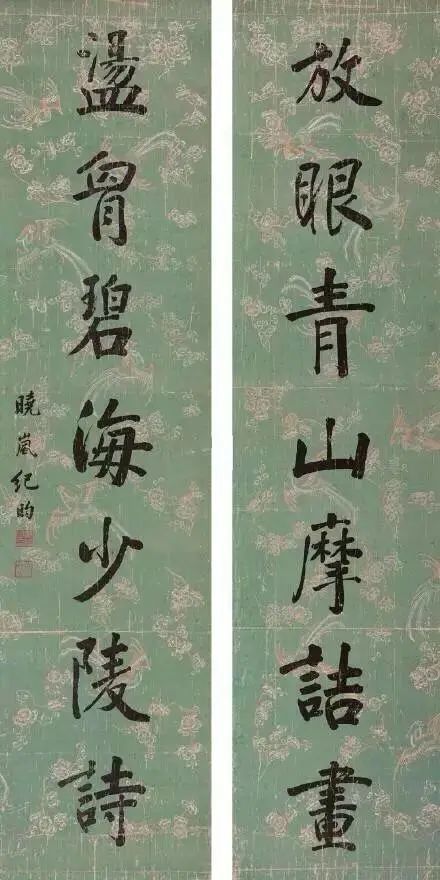 放眼青山摩詰畫
盪胷碧海少陵詩
曉嵐紀昀